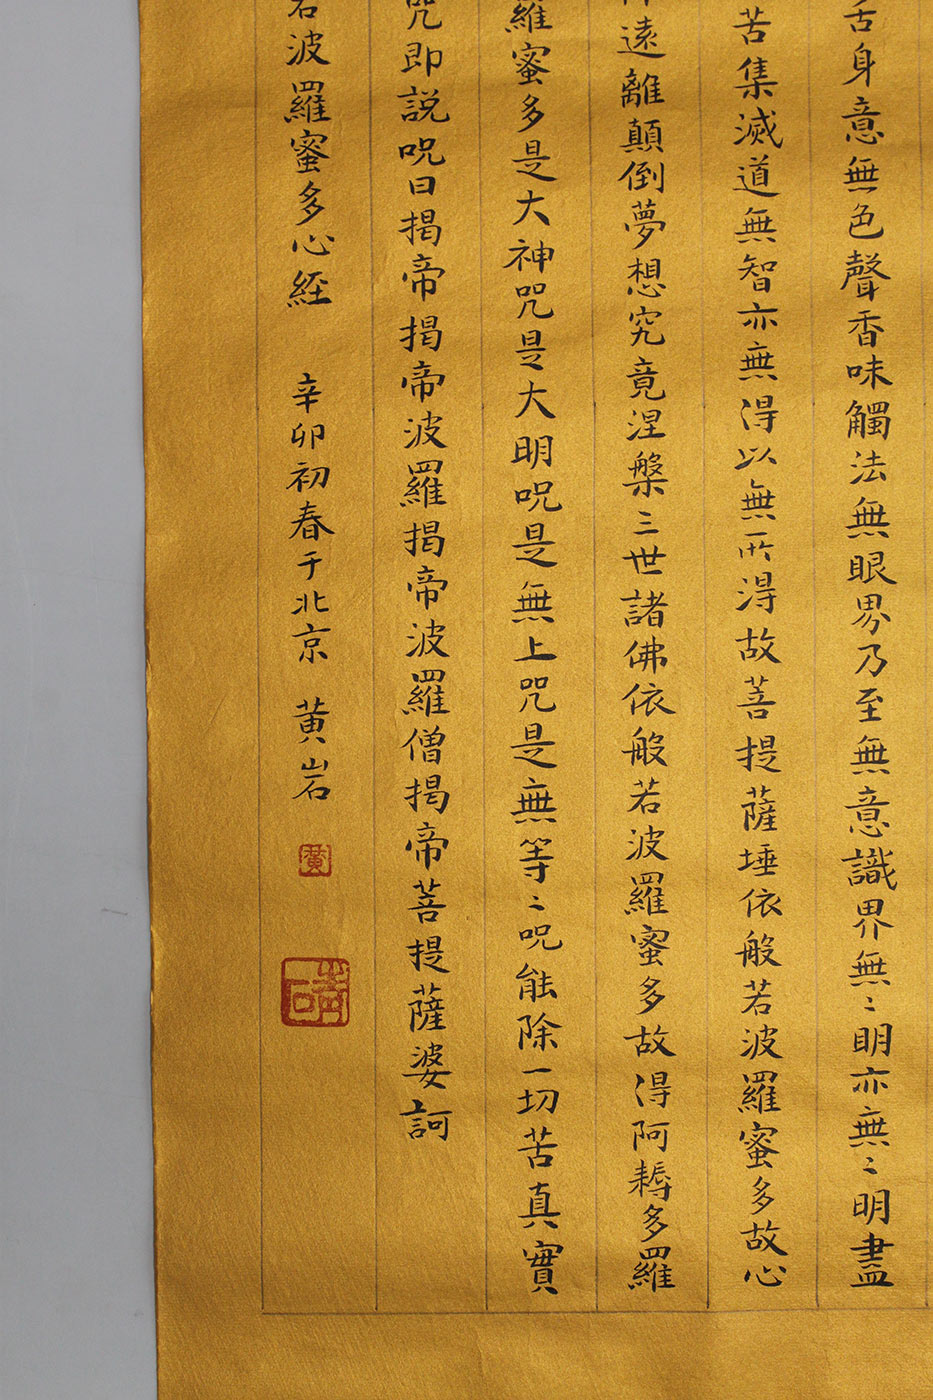 舌身意無色聲香味觸法無眼界乃至無意識界無〻明亦無〻明盡
苦集滅道無智亦無得以無所得故菩提薩埵依般若波羅蜜多故心
遠離顛倒夢想究竟涅槃三世諸佛依般若波羅蜜多故得阿耨多羅
羅蜜多是大神咒是大明呪是無上咒是無等〻呪能除一切苦真實
咒即說呪曰揭帝揭帝波羅揭帝波羅僧揭帝菩提薩婆訶
若波羅蜜多心經 辛卯初春于北京 黄岩
黄